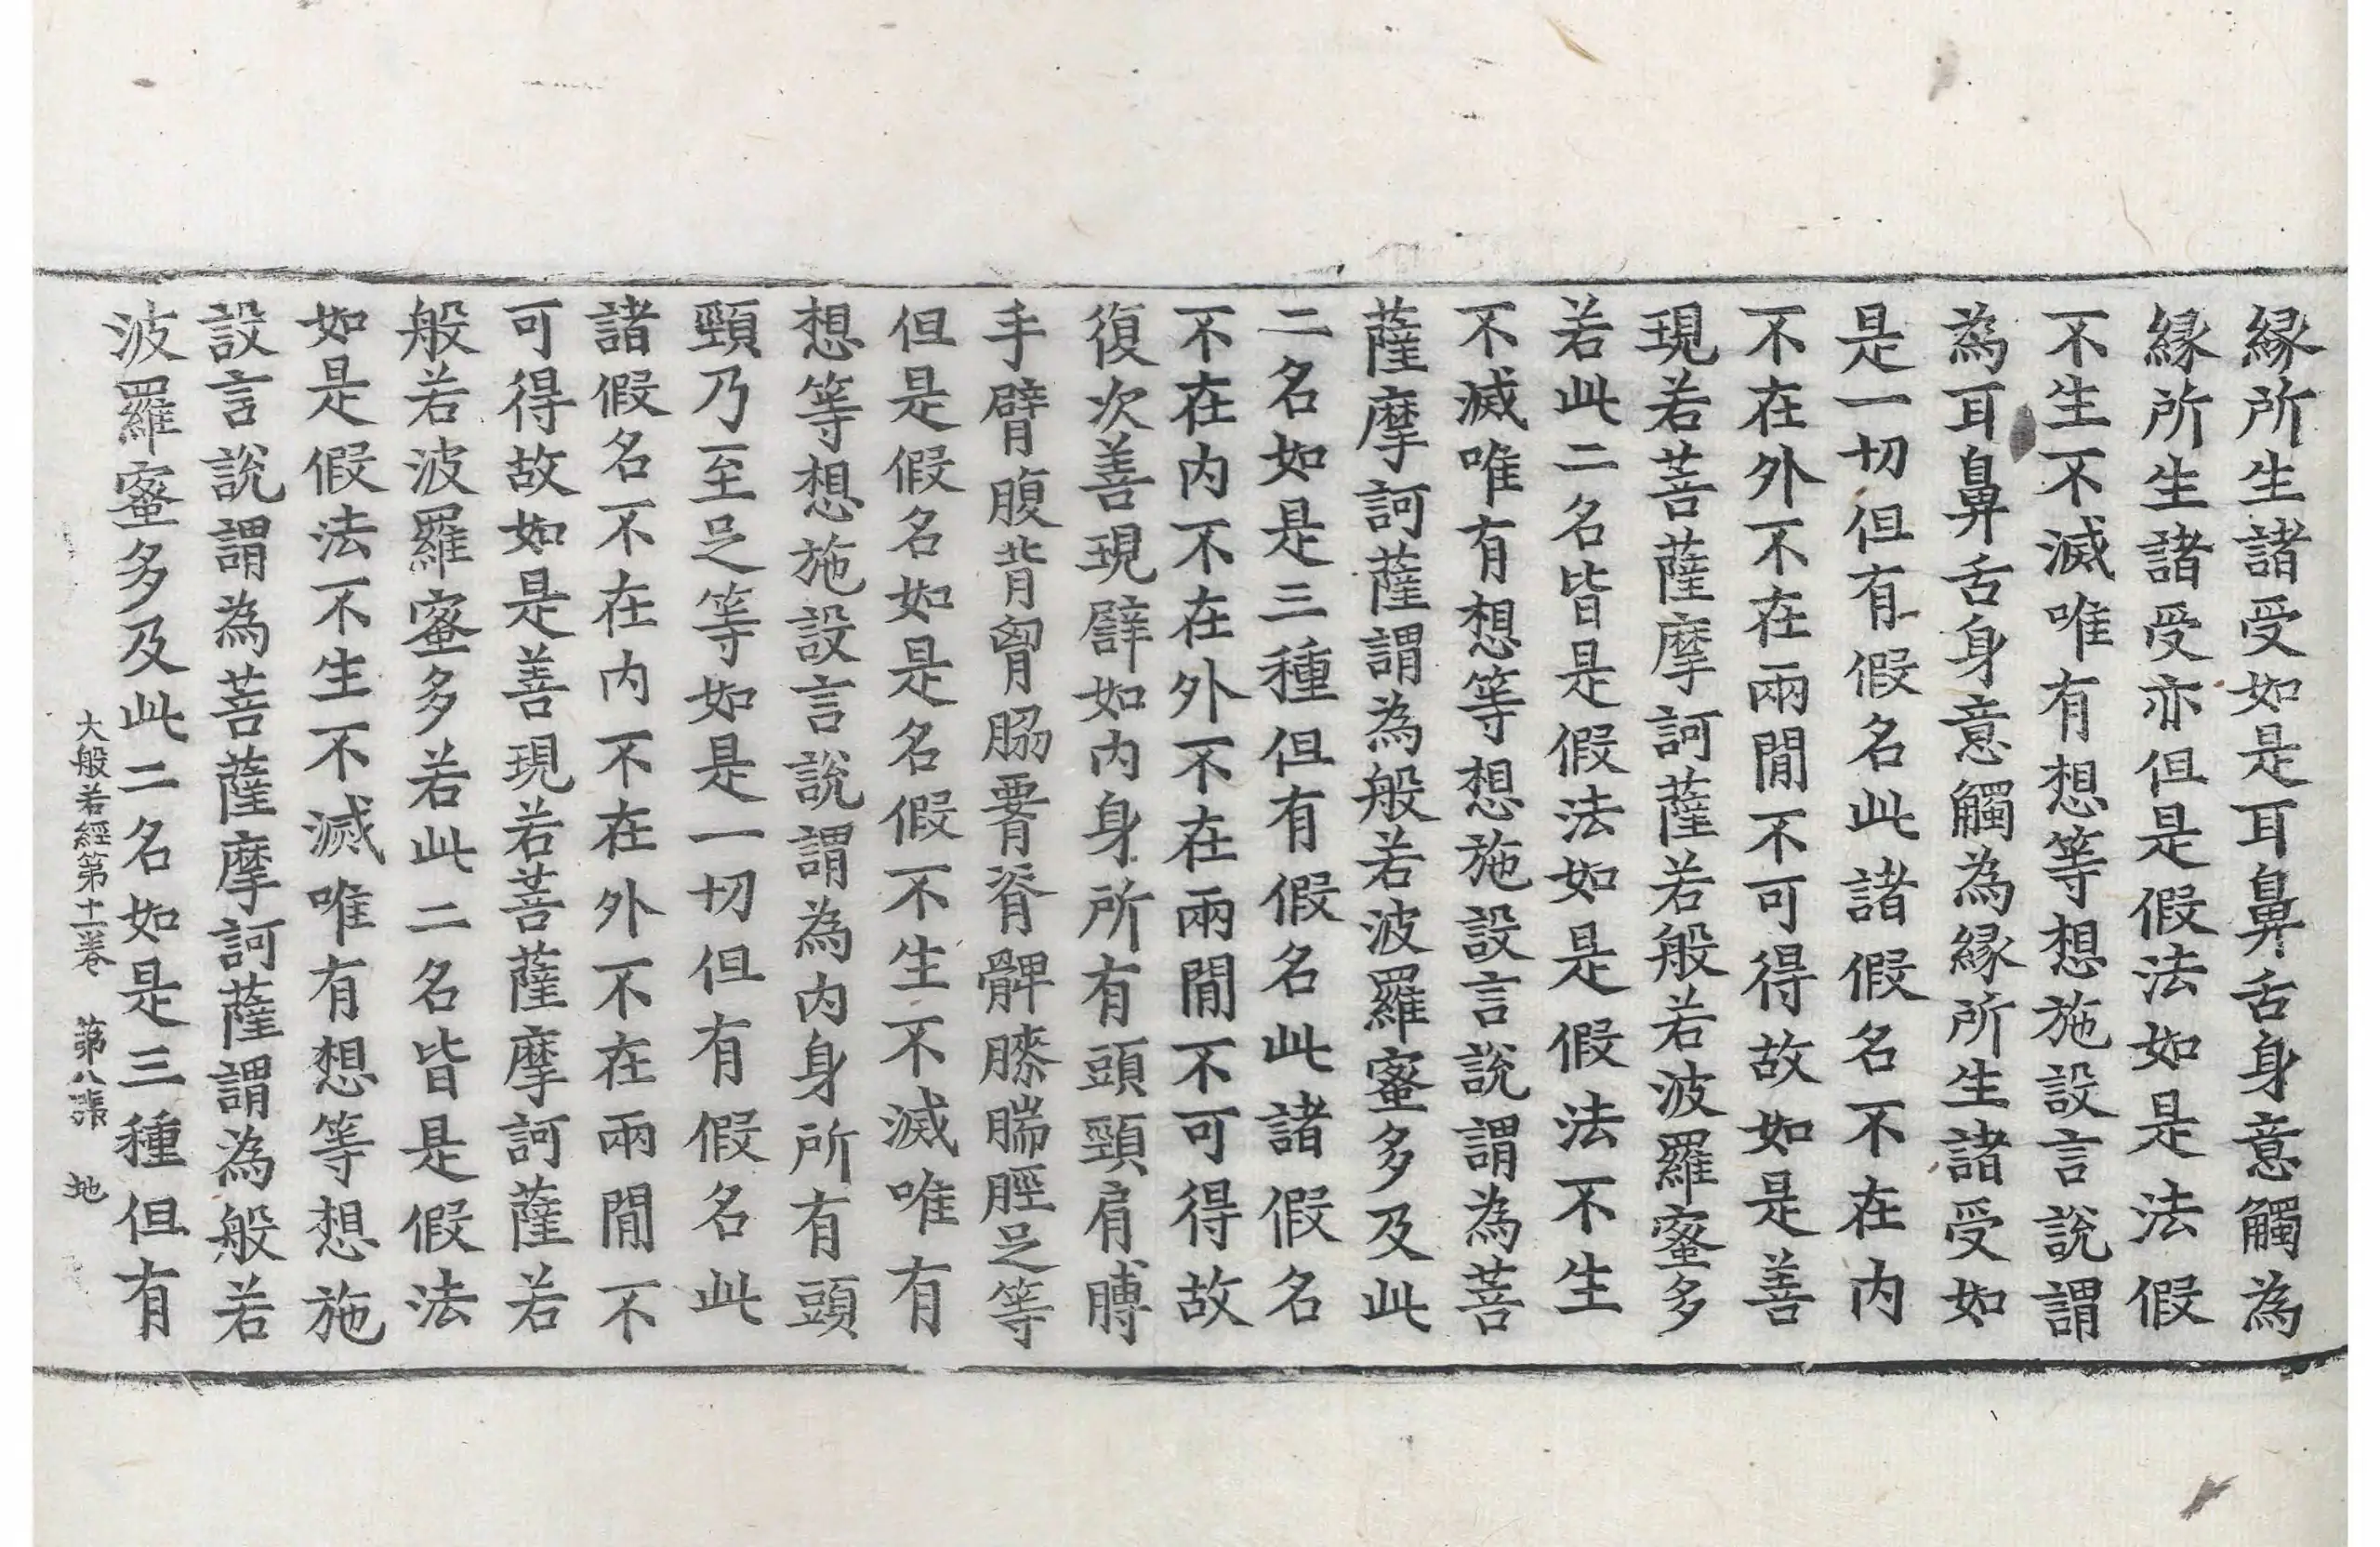 緣所生諸受如是耳鼻舌身意觸為
緣所生諸受亦但是假法如是法假
不生不滅唯有想等想施設言說謂
為耳鼻舌身意觸為緣所生諸受如
是一切但有假名此諸假名不在内
不在外不在兩閒不可得故如是善
現若菩薩摩訶薩若般若波羅蜜多
若此二名皆是假法如是假法不生
不滅唯有想等想施設言說謂為菩
薩摩訶薩謂為般若波羅蜜多及此
二名如是三種但有假名此諸假名
不在内不在外不在兩閒不可得故
復次善現譬如内身所有頭頸肩膊
手臂腹背胷脇䯒脊髀膝腨脛足等
但是假名如是名假不生不滅唯有
想等想施設言說謂為内身所有頭
頸乃至足等如是一切但有假名此
諸假名不在内不在外不在兩閒不
可得故如是善現若菩薩摩訶薩若
般若波羅蜜多若此二名皆是假法
如是假法不生不滅唯有想等想施
設言說謂為菩薩摩訶薩謂為般若
波羅蜜多及此二名如是三種但有
大般若經第十一卷 第八張 地